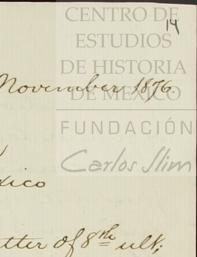 14
CENTRO DE
ESTUDIOS
DE HISTORIA
DE MÉXICO
November 1876.
FUNDACIÓN
Carlos Slim
xico
tter of 8th ult;